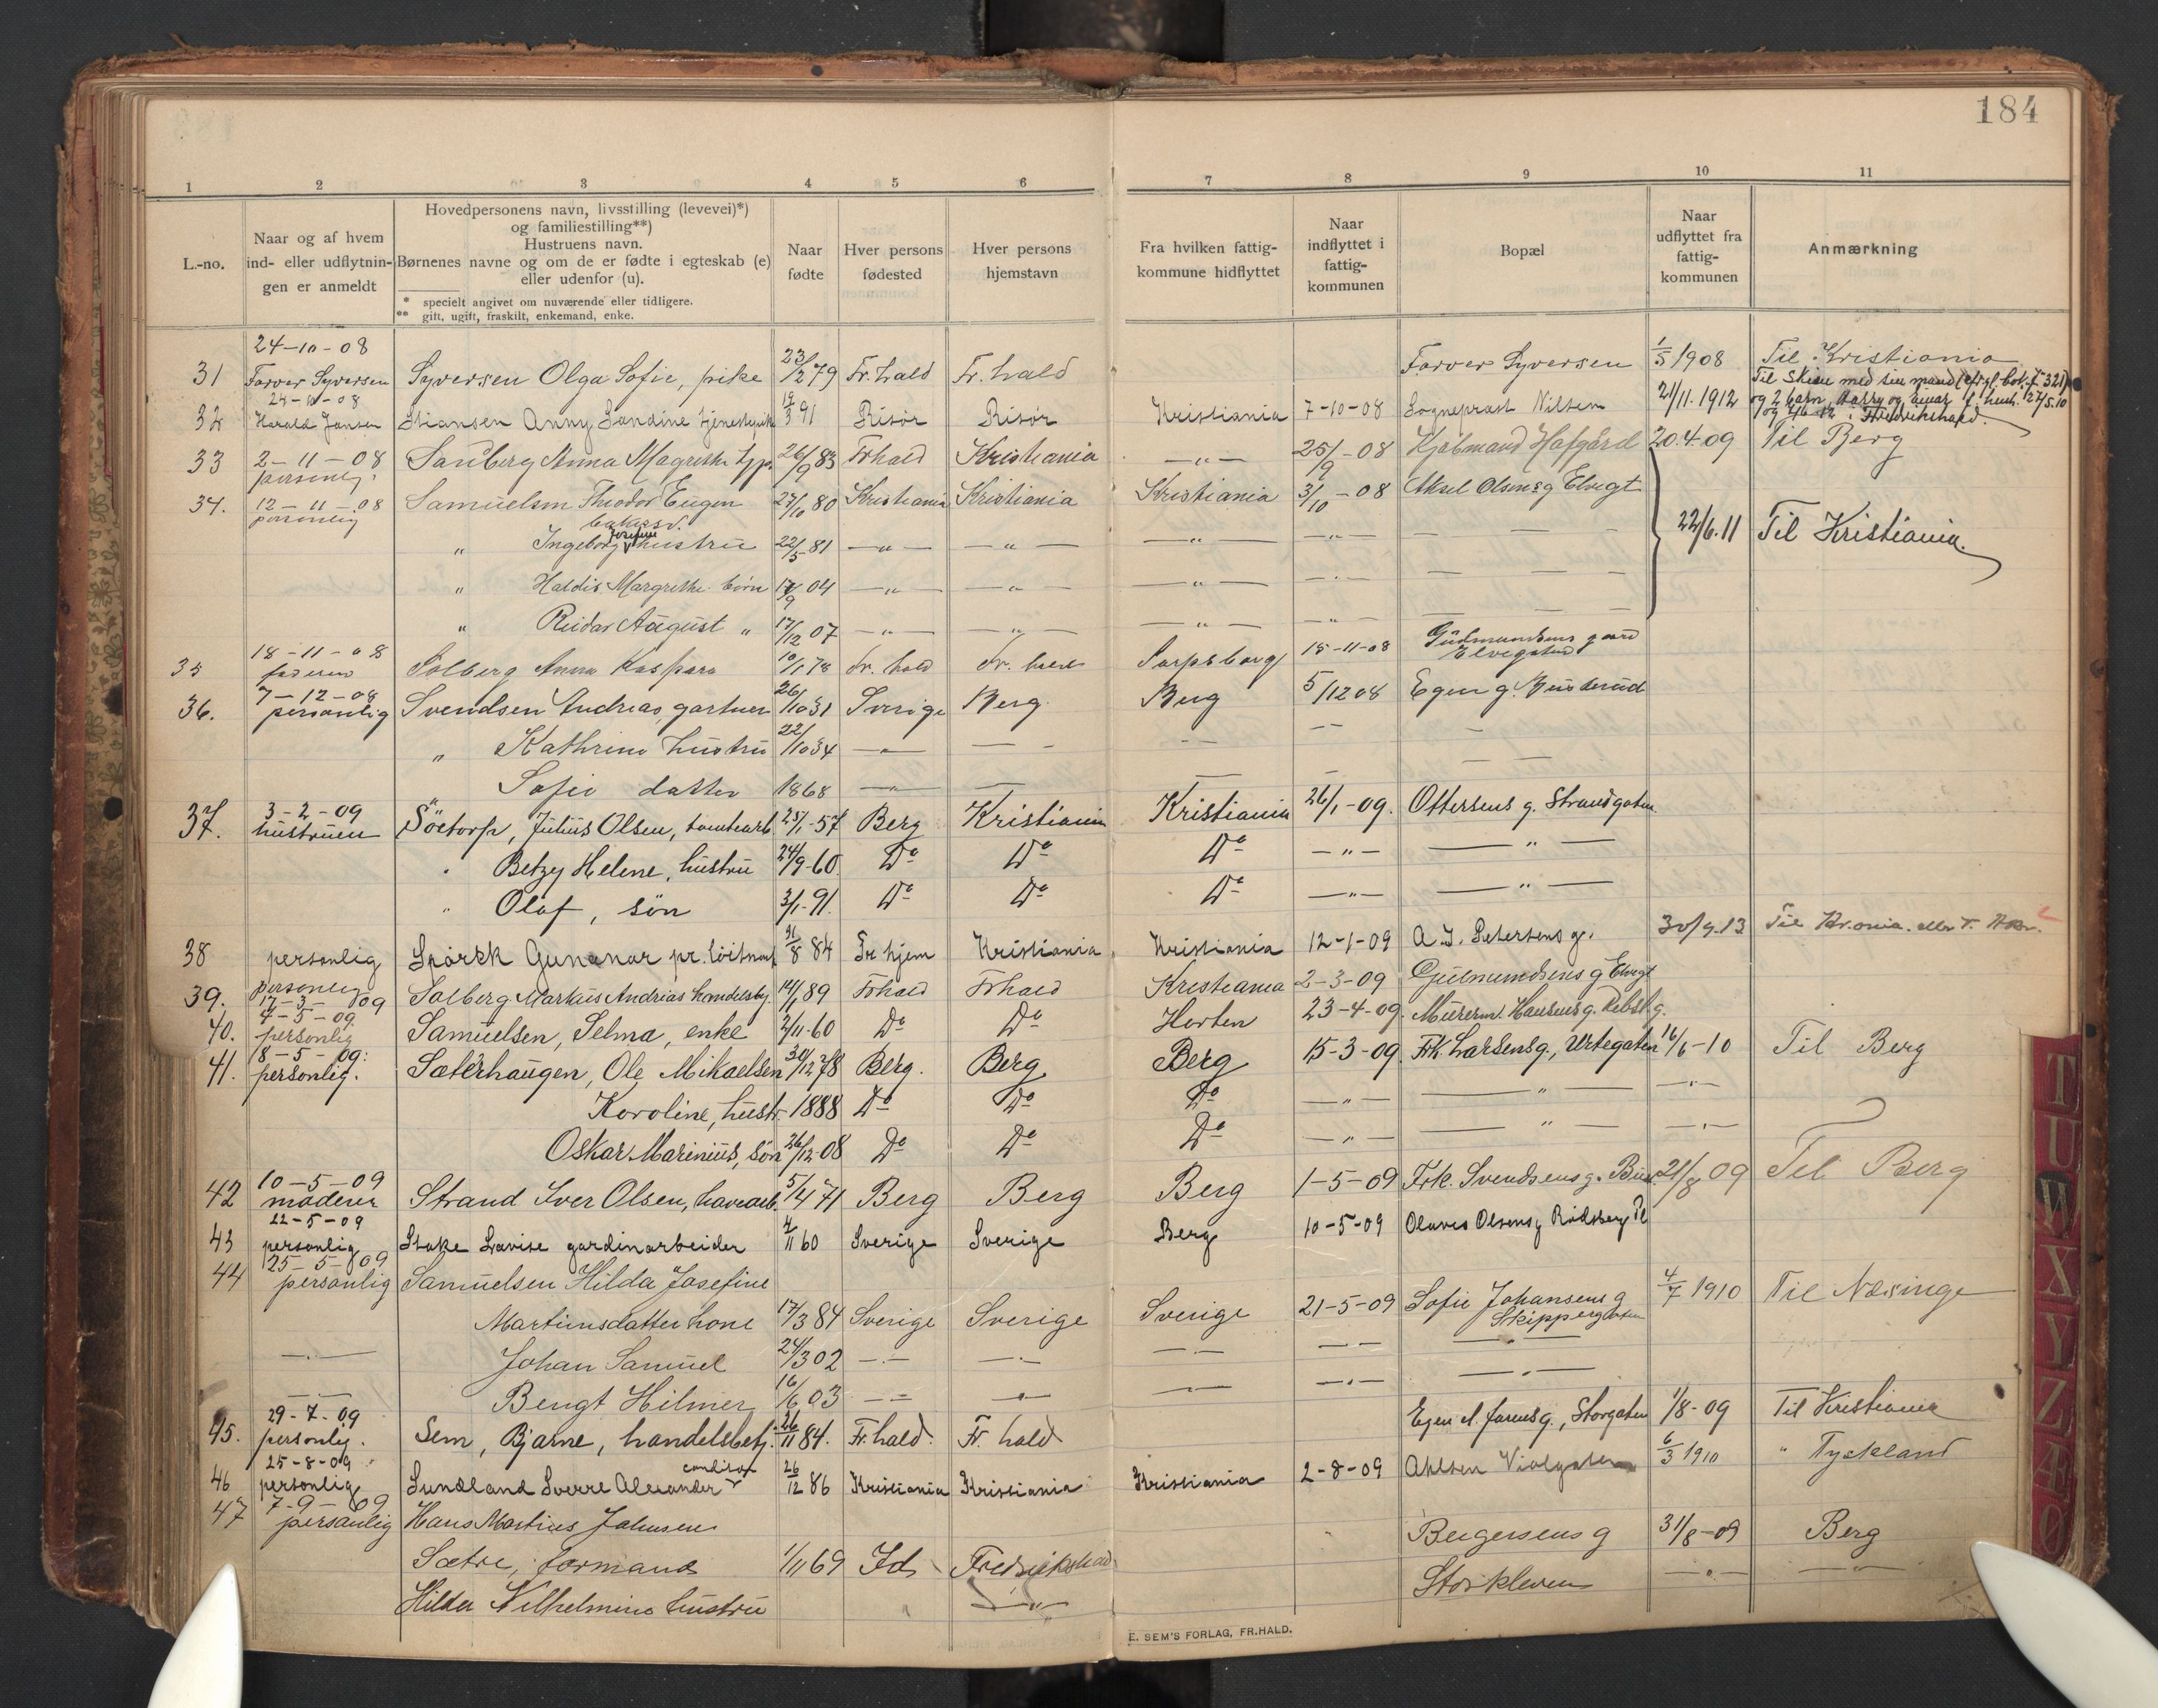 184
1 2 3 4 5 6 7 8 9 10 11
L.-no.
Naar og af hvem ind- eller udflytningen er anmeldt
Hovedpersonens navn, livsstilling (levevei)*) og familiestilling**)
Hustruens navn.
Børnenes navne og om de er fødte i egteskab (e) eller udenfor (u).
* specielt angivet om nuværende eller tidligere.
** gift, ugift, fraskilt, enkemand, enke.
Naar fødte
Hver persons fødested
Hver persons hjemstavn
Fra hvilken fattigkommune hidflyttet
Naar indflyttet i fattigkommunen
Bopæl
Naar udflyttet fra fattigkommunen
Anmærkning
24-10-08
31 Farver Syversen Syversen Olga Sofie, pike 23/2 79 Fr.hald Fr.hald Farver Syversen 1/5 1908 Til Kristiania
24-10-08
Til Skien med sin mand
og 2 barn, Harry og
32 Harald Jansen Stiansen Anny Sandine 3 91 Risør Risør Kristiania 7-10-08 Sogneprest Nilsen 21/11.1912
33 2-11-08 personlig. Sandberg Anna Magrethe 26/9 83 Frhald Kristiania -"- 25/9-08 Kjøbmand Hafgård 20.4.09 Til Berg
34. 12-11-08 personlig Samuelsen Theodor Eugen 27/10 80 Kristiania Kristiania Kristiania 3/10-08 Aksel Olsens g Elvegt
" Ingeborg Josefine hustru 22/5 81 -"- -"- -"- -"- - - - 22/6.11 Til Kristiania.
" Haldis Margrethe barn 17/9 04 -"- -"- -"- -"- - - -
" Reidar August " 17/12 07 -"- -"- -"- -"- - - -
35 18-11-08 faderen Solberg Anna Kaspara 10/1 78 Fr.hald Fr.hald Sarpsborg 15-11-08 Gudmundsens gaard Elvegaten
36. 7-12-08 personlig Svendsen Andreas, gartner 26/10 31 Sverige Berg Berg 5/12 08 Egen g.
" Kathrine hustru 22/10 34 -"- - - - -- - -
" Sofie datter 1868 -"- - - -
37. 3-2-09 hustruen Söetorp, Julius Olsen, tomtearb. 25/1-57 Berg Kristiania Kristiania 26/1-09. Ottersens g. Strandgaten
" Betzy Helene, hustru 24/9-60. Do Do Do -"- -"-
" Olaf, sön 3/1-91. Do Do Do -"- -"-
38 personlig Spörck Gunanar pr. löitnant 31/8 84 Tr.hjem Kristiania Kristiania 12-1-09 A.I. Petersens g. 30/9.13 Til Kr.ania. eller T.
39. personlig 17-3-09 Solberg Markus Andrias handelsbj. 14/1 89 Frhald Frhald Kristiania 2-3-09 Gulmundsens g Elvegt
40. 4-5-09 personlig Samuelsen, Selma, enke 2/11-60 Do Do Horten 23-4-09. Murerm. Hansens g. Rebslg.
41. 8-5-09. personlig. Sæterhaugen, Ole Mikaelsen 30/12 78 Berg. Berg Berg 15-3-09. Frk. Larsens g., Urtegaten 16/6-10 Til Berg
Karoline, hustr. 1888 Do Do Do -"- -"- -"-
Oskar Marinius, sön 26/12-08 Do Do Do -"- -"- -"-
42 10-5-09 moderen Strand Iver Olsen, havearb. 5/14 71 Berg Berg Berg 1-5-09 Frk. Svendsens g. 21/8 09 Til Berg
43 22-5-09 personlig Stake Lovise gardinarbeider 4/11 60 Sverige Sverige Berg 10-5-09 Olaves Olsens g Rödsberg Pl
44 25-5-09 personlig Samuelsen Hilda Josefine
Martinsdatter kone 17/3 84 Sverige Sverige Sverige 21-5-09 Sofie Johansens g Skippergaten 4/7 1910 Til Næsinge
-"- Johan Samuel 24/3 02 -"- -"- -"- -"- -"-
-"- Bengt Hilmer 16/6 03 -"- -"- -"- -"- -"-
45. 29-7-09 personlig. Sem, Bjarne, handelsbetj. 26/11 84. Fr.hald. Fr. hald Storgaten 1/8-09 Til Kristiania
46 25-8-09 personlig Sundland Sverre Alexander conditor 26/12 86 Kristiania Kristiania Kristiania 2-8-09 Ahlsen Violgaten 6/3 1910 " Tyskland
47 7-9-09 personlig Hans Martius Johnsen
Sætre, formand 1/11 69 Id Fredrikshald Bergersens g 31/8-09 Berg
Hilda Vilhelmine hustru -"- Storkleven -"- -"-
E. SEM'S FORLAG, FR.HALD.
T
U
W
X
Y
Z
Æ
Ø